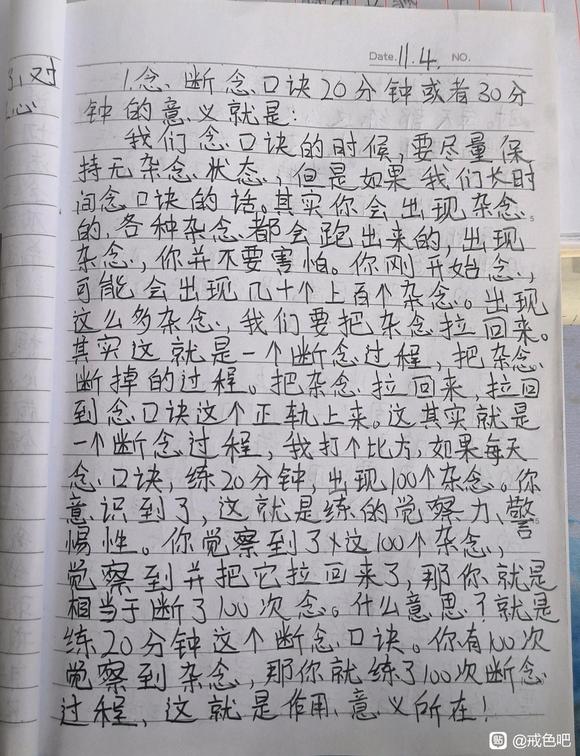 了,对
心
Date. 11.4. NO.
1.念、断念口诀20分钟或者30分
钟的意义就是:
我们念口诀的时候,要尽量保
持无杂念状态,但是如果我们长时
间念口诀的话。其实你会出现杂念
的,各种杂念都会跑出来的,出现
杂念,你并不要害怕。你刚开始念,
可能会出现几十个上百个杂念。出现
这么多杂念,我们要把杂念拉回来。
其实这就是一个断念过程,把杂念
断掉的过程。把杂念拉回来,拉回
到念口诀这个正轨上来。这其实就是
一个断念过程,我打个比方,如果每天
念口诀,练20分钟,出现100个杂念。你
意识到了,这就是练的觉察力、警
惕性。你觉察到了这100个杂念,
觉察到并把它拉回来了,那你就是
相当于断了100次念。什么意思?就是
练20分钟这个断念口诀。你有100次
觉察到杂念,那你就练了100次断念
过程,这就是作用、意义所在!
贴 @戒色吧